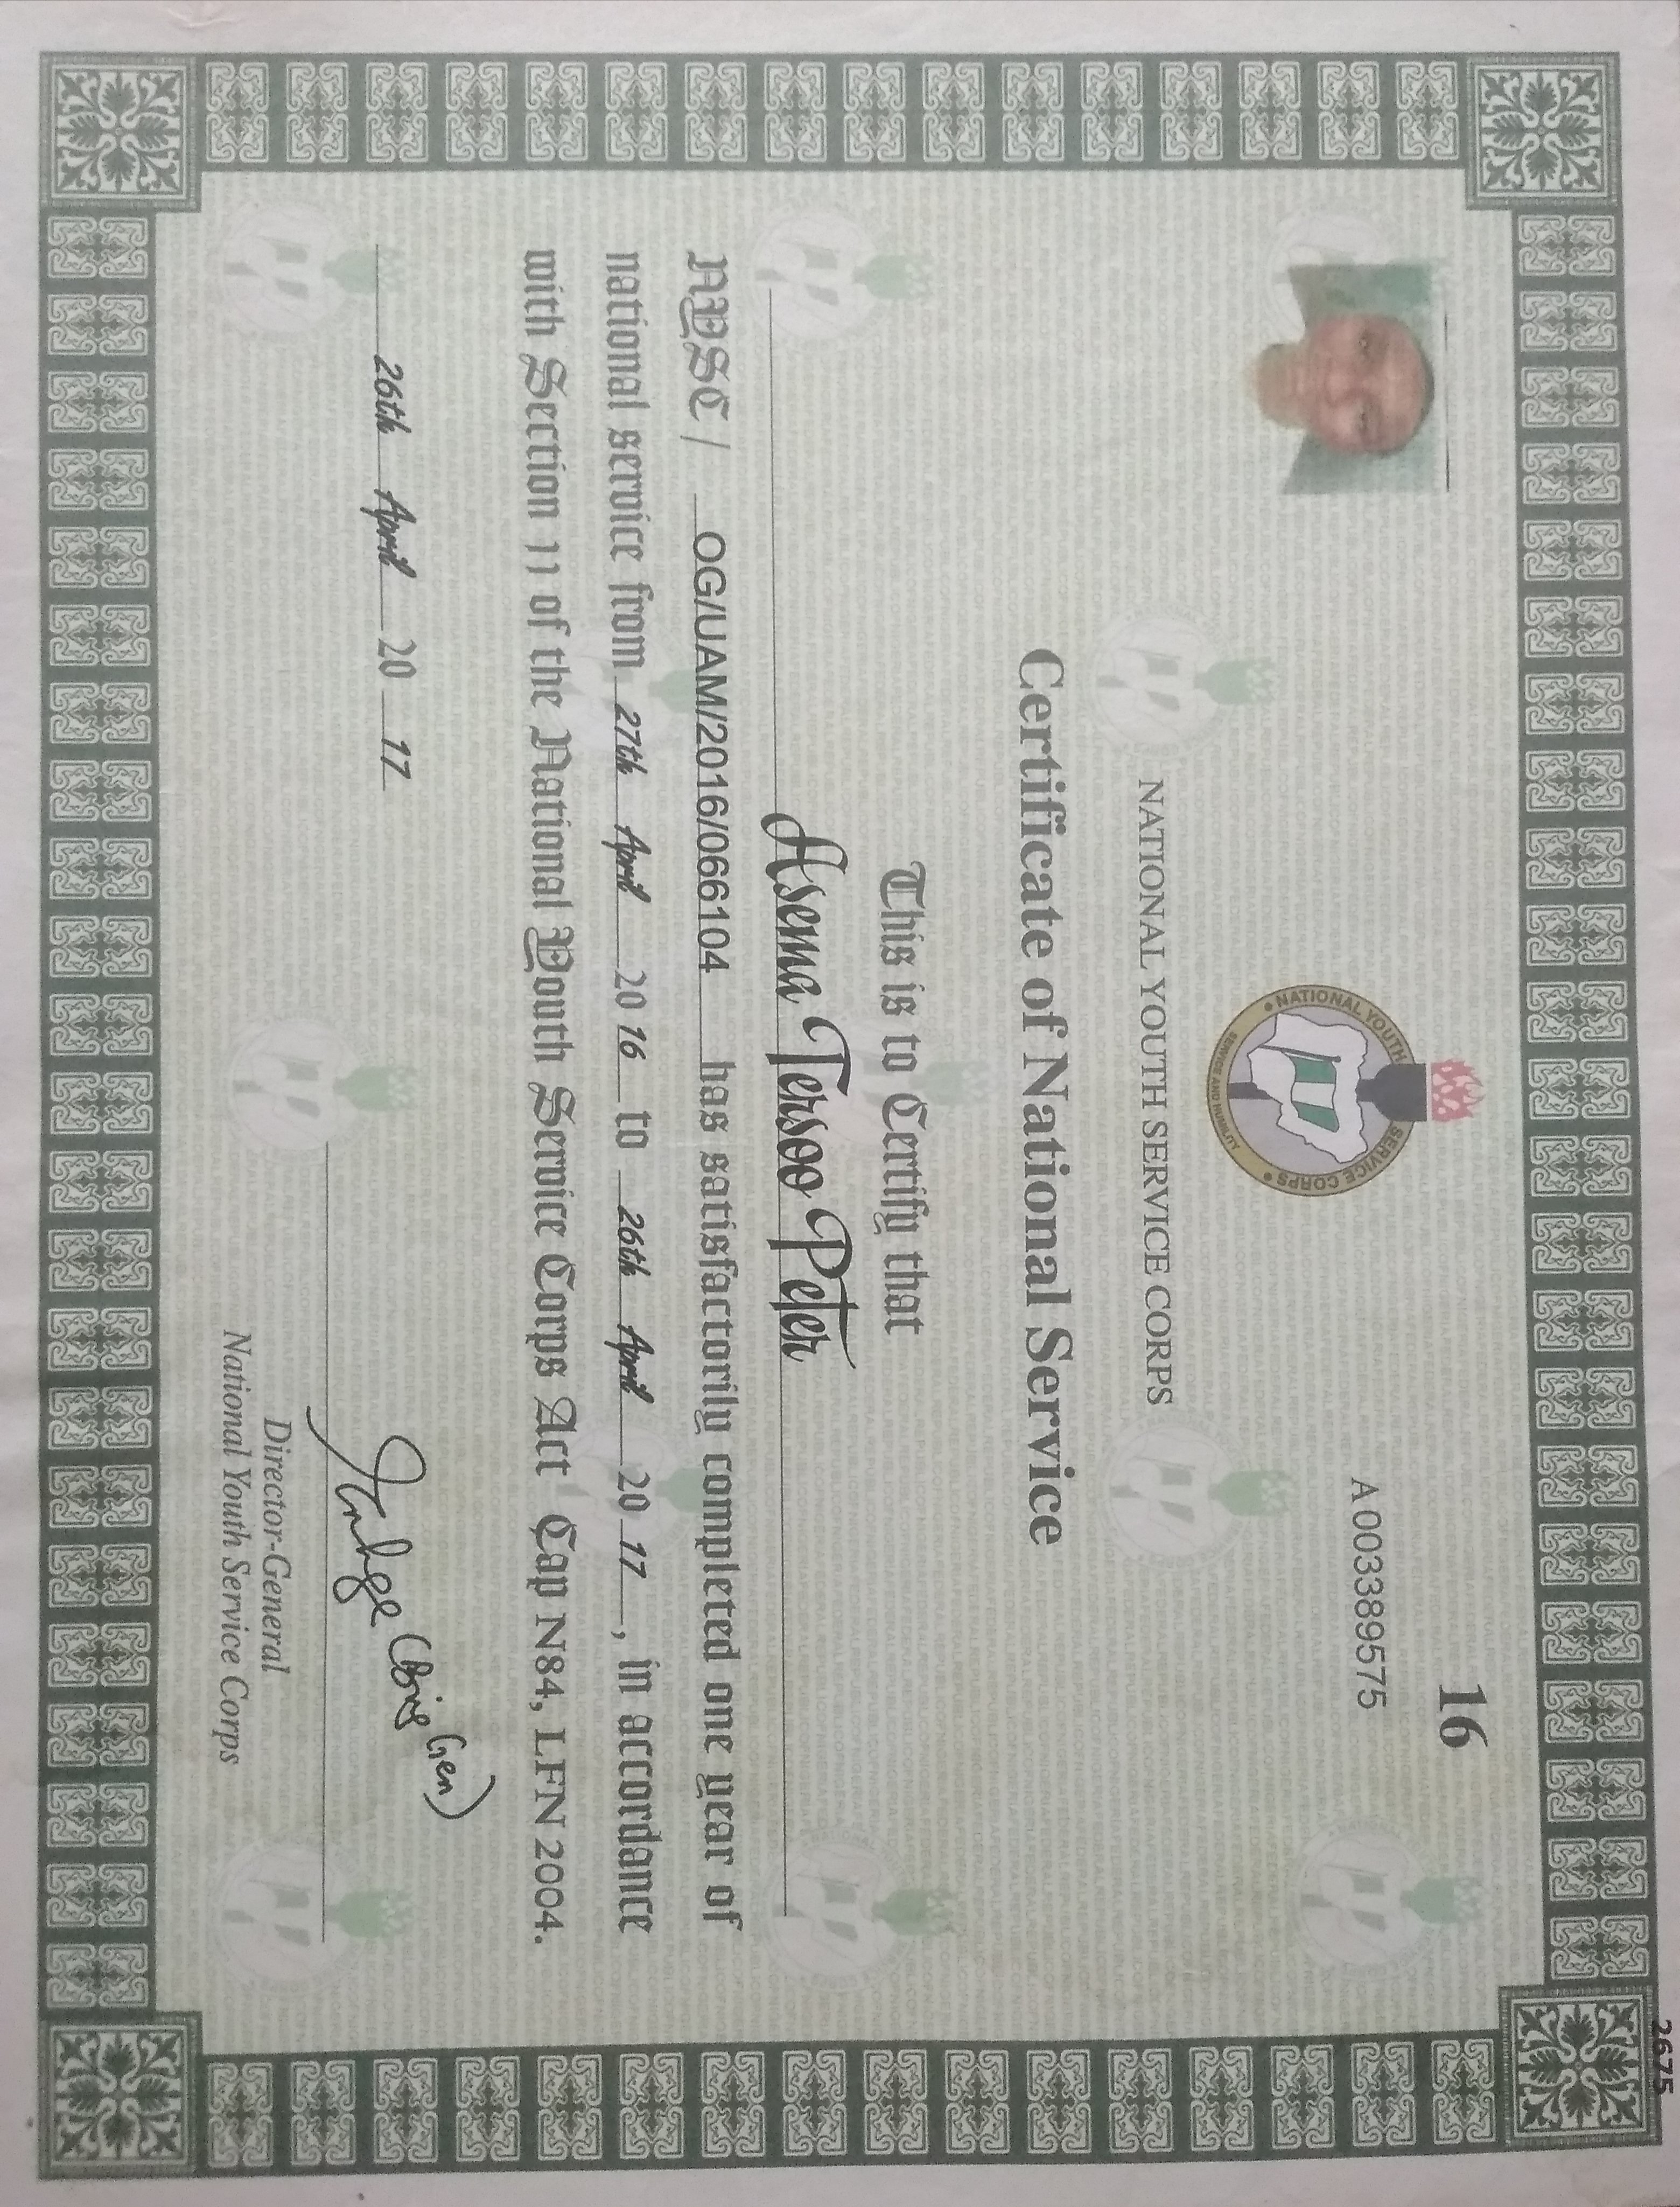 2675
16
A 003389575
NATIONAL YOUTH SERVICE CORPS
SERVICE AND HUMILITY
NATIONAL YOUTH SERVICE CORPS
Certificate of National Service
This is to Certify that
Asema Tersoo Peter
NYSC / OG/UAM/2016/066104 has satisfactorily completed one year of
national service from 27th April 20 16 to 26th April 20 17 , in accordance
with Section 11 of the National Youth Service Corps Act Cap N84, LFN 2004.
26th April 20 17
(Brig Gen)
Director-General
National Youth Service Corps